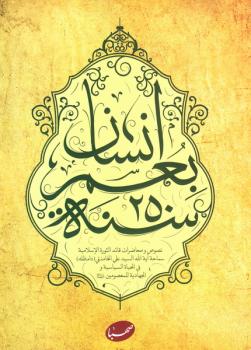 إنسان
بعمر
٢٥٠
سنة
نصوص ومحاضرات قائد الثورة الإسلامية
سماحة آية الله السيد علي الخامنئي (دام ظله)
في الحياة السياسية و
الجهادية للمعصومين
صهبا